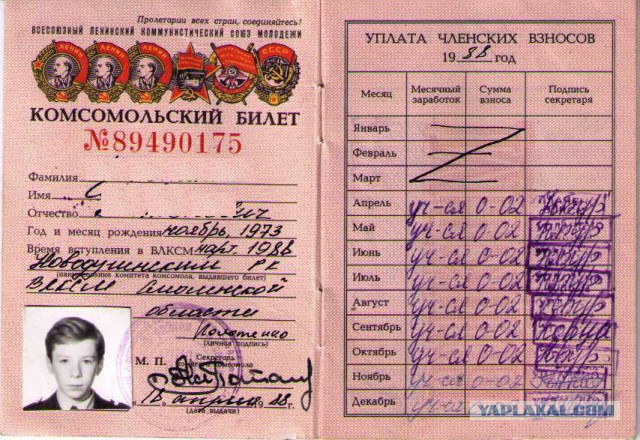 Пролетарии всех стран, соединяйтесь!
ВСЕСОЮЗНЫЙ ЛЕНИНСКИЙ КОММУНИСТИЧЕСКИЙ СОЮЗ МОЛОДЕЖИ
ЛЕНИН ЛЕНИН ЛЕНИН СССР
КОМСОМОЛЬСКИЙ БИЛЕТ
№89490175
Фамилия
Имя С
Отчество ич
Год и месяц рождения ноябрь, 1973
Время вступления в ВЛКСМ март, 1988
РК
(наименование комитета комсомола, выдавшего билет)
ВЛКСМ Смоленской
области
(личная подпись)
М. П. Секретарь
комитета комсомола
18 апреля 1988 г.
(дата выдачи)
УПЛАТА ЧЛЕНСКИХ ВЗНОСОВ
19 88 год
Месяц Месячный заработок Сумма взноса Подпись секретаря
Январь
Февраль
Март
Апрель уч-ся 0-02
Май уч-ся 0-02
Июнь уч-ся 0-02
Июль уч-ся 0-02
Август уч-ся 0-02
Сентябрь уч-ся 0-02
Октябрь уч-ся 0-02
Ноябрь уч-ся 0-02
Декабрь уч-ся
YAPLAKAL.COM